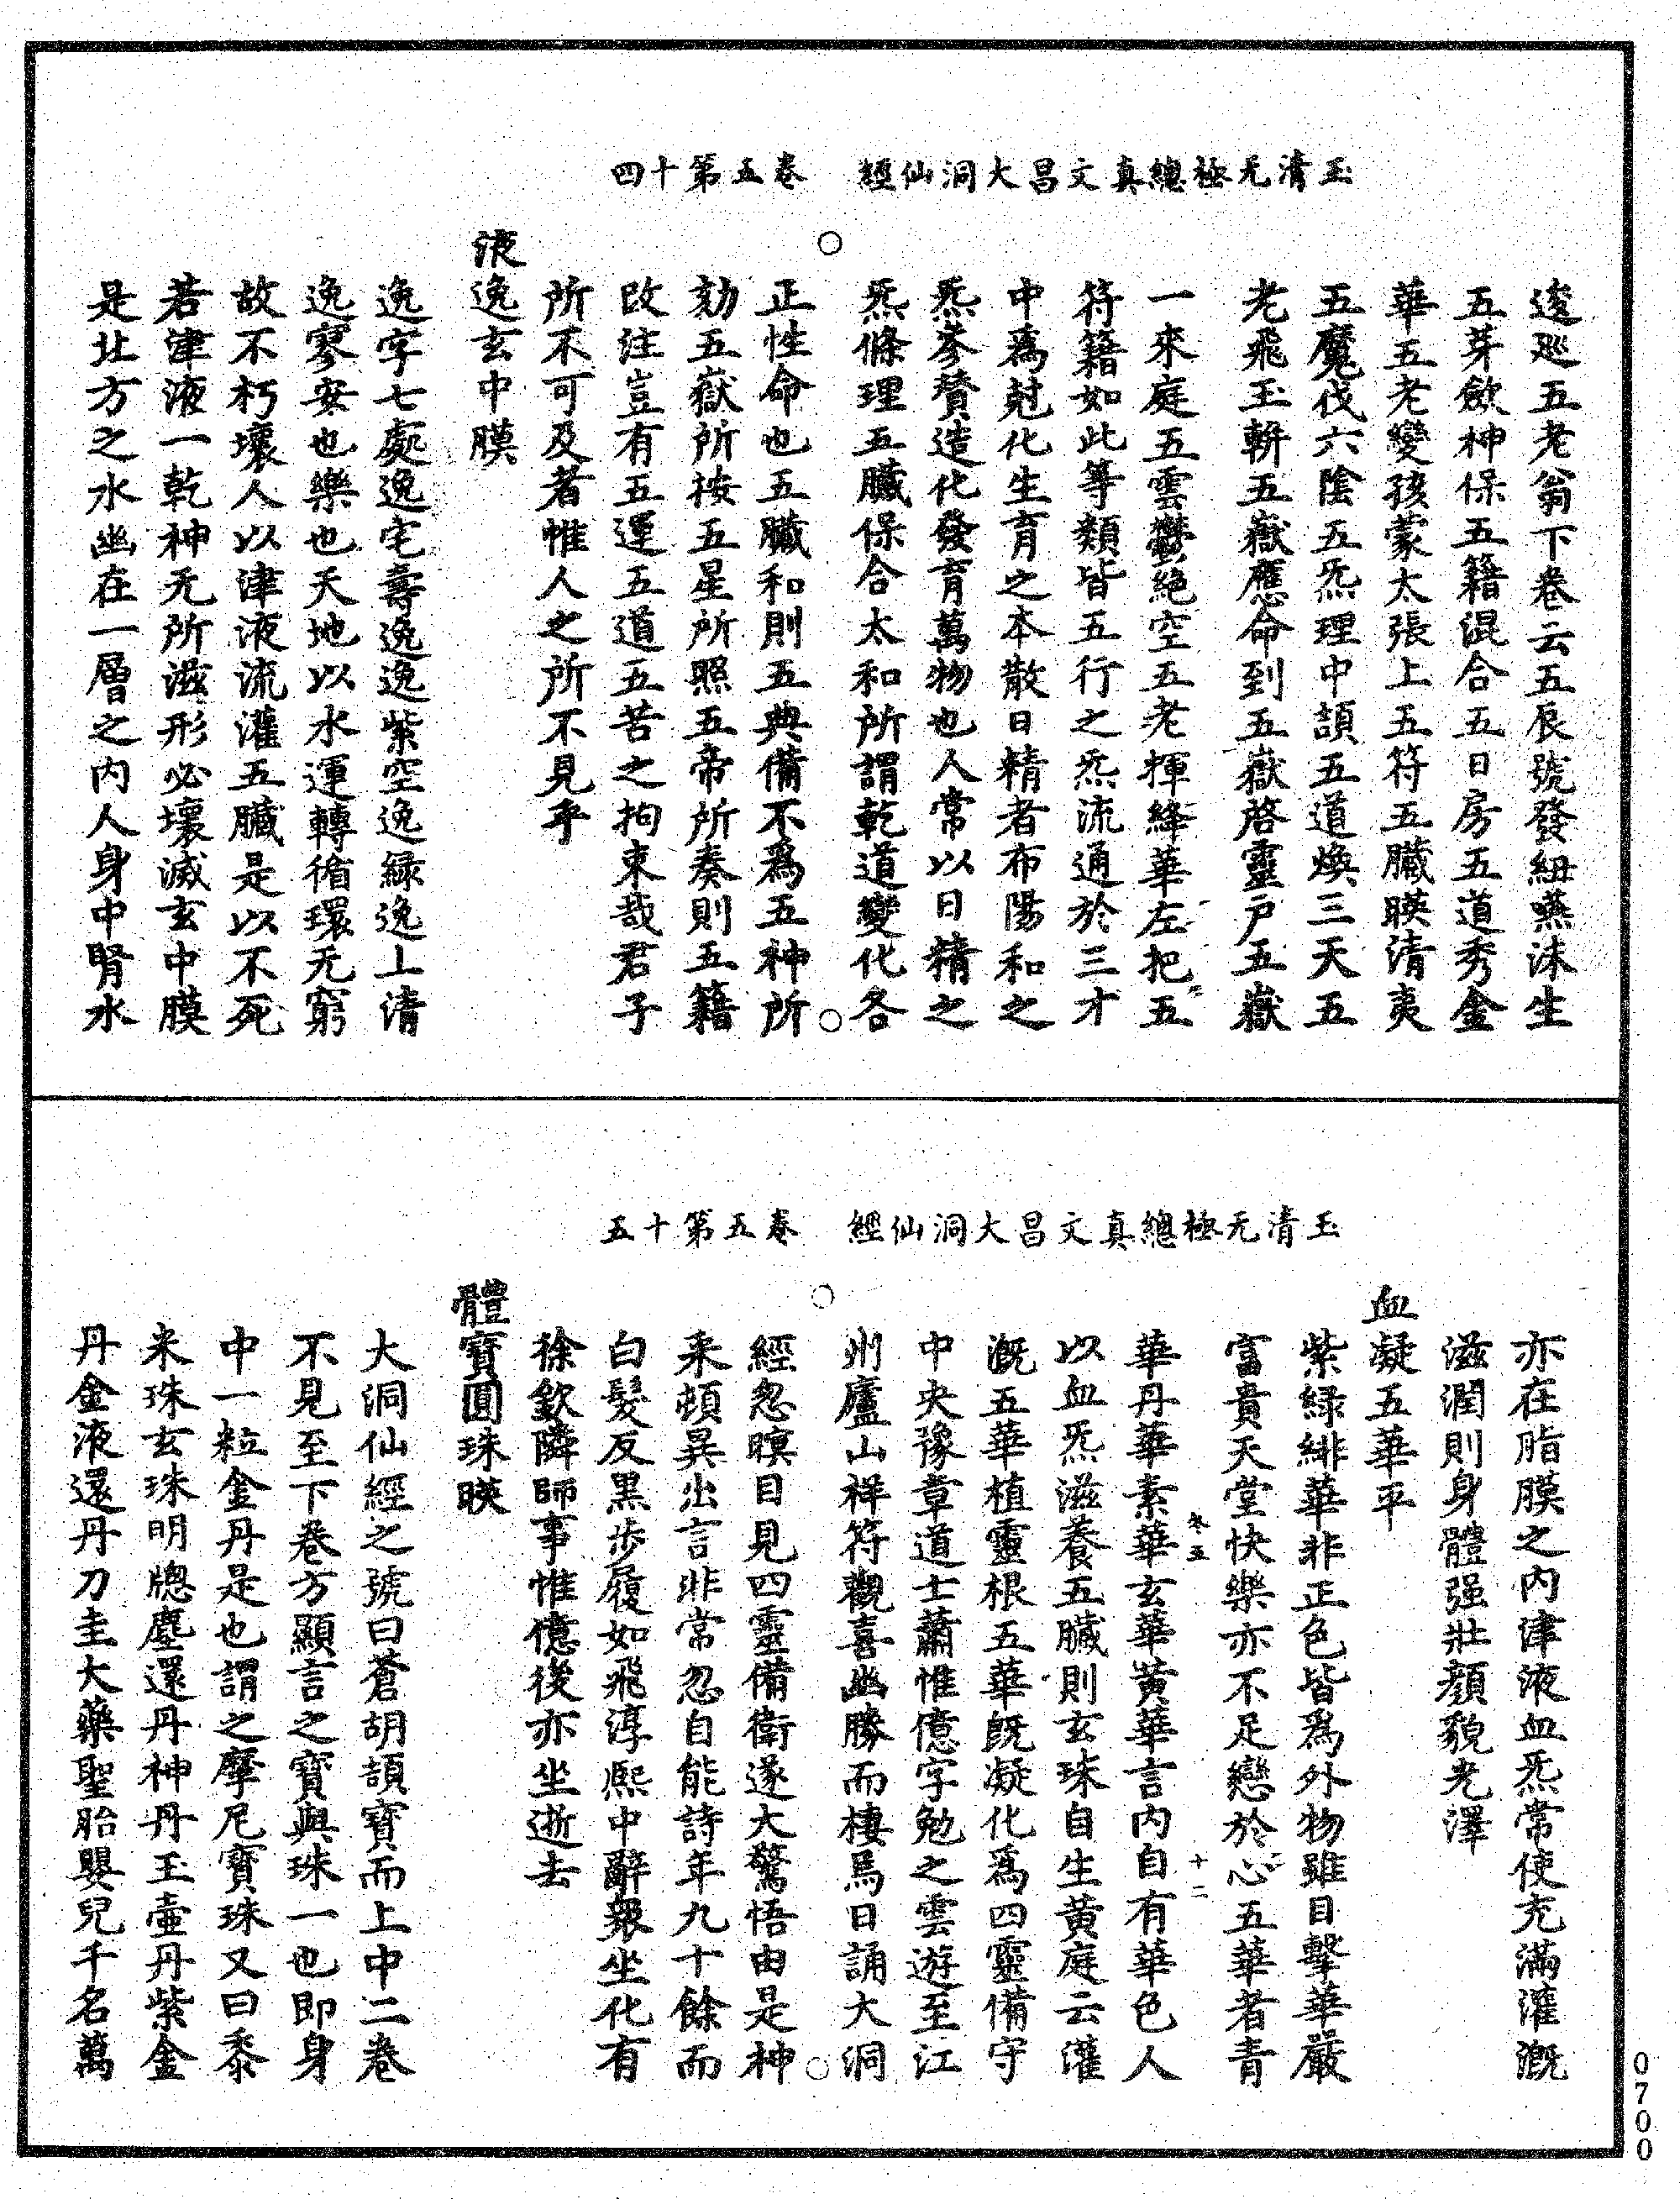 玉清无極總真文昌大洞仙經　卷五第十四
逡廵五老翁下卷云五辰號發紐嚥沬生
五芽飲神保五籍混合五日房五道秀金
華五老變孩蒙太張上五符五臟暎清夷
五魔伐六陰五炁理中頡五道煥三天五
老飛玉輧五嶽應命到五嶽啓靈戸五嶽
一來庭五雲欝絶空五老揮絳華左把五
符籍如此等類皆五行之炁流通於三才
中爲尅化生育之本散日精者布陽和之
炁叅賛造化發育萬物也人常以日精之
炁條理五臟保合太和所謂乾道變化各
正性命也五臟和則五典備不爲五神所
劾五嶽所按五星所照五帝所奏則五籍
改注豈有五運五道五苦之拘束哉君子
所不可及者惟人之所不見乎
液逸玄中膜
逸字七處逸宅壽逸逸紫空逸緑逸上清
逸寥安也樂也天地以水運轉循環无窮
故不朽壞人以津液流灌五臟是以不死
若津液一乾神无所滋形必壞滅玄中膜
是北方之水幽在一層之内人身中腎水
玉清无極總真文昌大洞仙經　卷五第十五
亦在脂膜之内津液血炁常使充滿灌溉
滋潤則身體强壯顔貌光澤
血凝五華平
紫緑緋華非正色皆爲外物雖目擊華嚴
富貴天堂快樂亦不足戀於心五華者青
華丹華素華玄華黄華言内自有華色人
以血炁滋養五臟則玄珠自生黄庭云灌
溉五華植靈根五華旣凝化爲四靈備守
中央豫章道士蕭惟億字勉之雲遊至江
州廬山祥符觀喜幽勝而棲焉日誦大洞
經忽瞑目見四靈備衛遂大驚悟由是神
来頓異出言非常忽自能詩年九十餘而
白髮反黒歩履如飛淳熈中辭衆坐化有
徐欽隣師事惟億後亦坐逝去
體寶圓珠暎
大洞仙經之號曰蒼胡頡寶而上中二卷
不見至下卷方顯言之寶與珠一也即身
中一粒金丹是也謂之摩尼寶珠又曰黍
米珠玄珠明牕塵還丹神丹玉壷丹紫金
丹金液還丹刀圭大藥聖胎嬰兒千名萬
0700